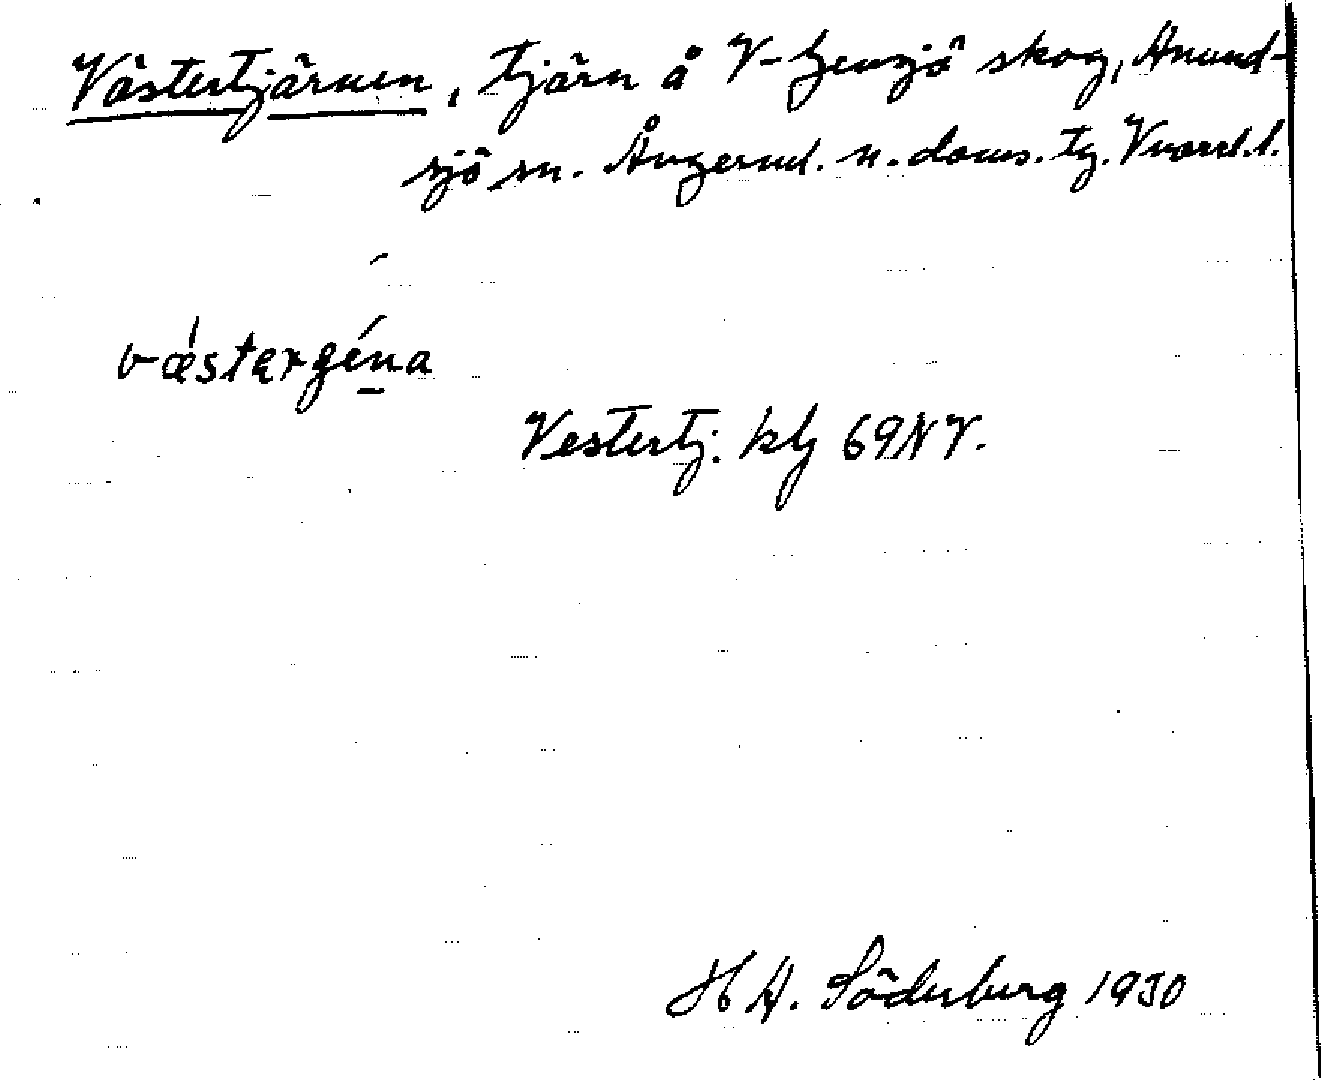 Västertjärnen, tjärn å V-Gensjö skog, Anund-
sjö sn. Ångerml. n. doms. tg. Vnorrl. l.
västergéna
Vestertj. kbg 69NV.
H A. Söderberg 1930